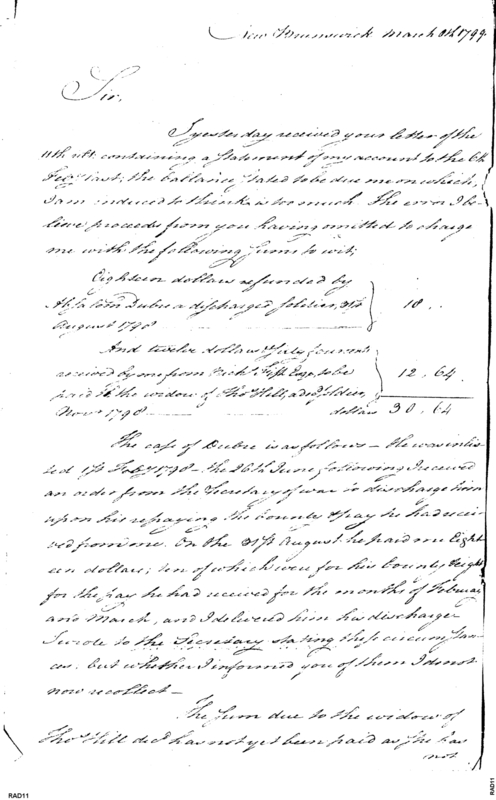 New Brunswick March 8th 1799.
Sir,
I yesterday received your letter of the
11th ult. containing a Statement of my account to the 6th
Feby last; the ballance stated to be due me on which,
I am induced to think is too much. The error I be-
lieve proceeds from you having omitted to charge
me with the following Sums to wit;
Eighteen dollars refunded by
Absalom Dubre a discharged soldier, 31st
August 1798
18 . .
And twelve dollars & sixty four cents
received by me from Esqr. to be
paid to the widow of Thos Hill, a decd. soldier
Novr 1798
12. 64.
dollars 30. 64
The case of Dubre is as follows — He was inlis-
ted 1st Feby 1798 — the 26th June following I received
an order from the Secretary of war to discharge him
upon his repaying the bounty & pay he had recei-
ved from me. On the 31st August he paid me Eight
een dollars; ten of which were for his bounty & eight
for the pay he had received for the months of February
and March, and I delivered him his discharge
I wrote to the Secretary stating these circumstan-
ces; but whether I informed you of them I do not
now recollect —
The Sum due to the widow of
Thos Hill decd has not yet been paid as she has
not
RAD11
RAD11